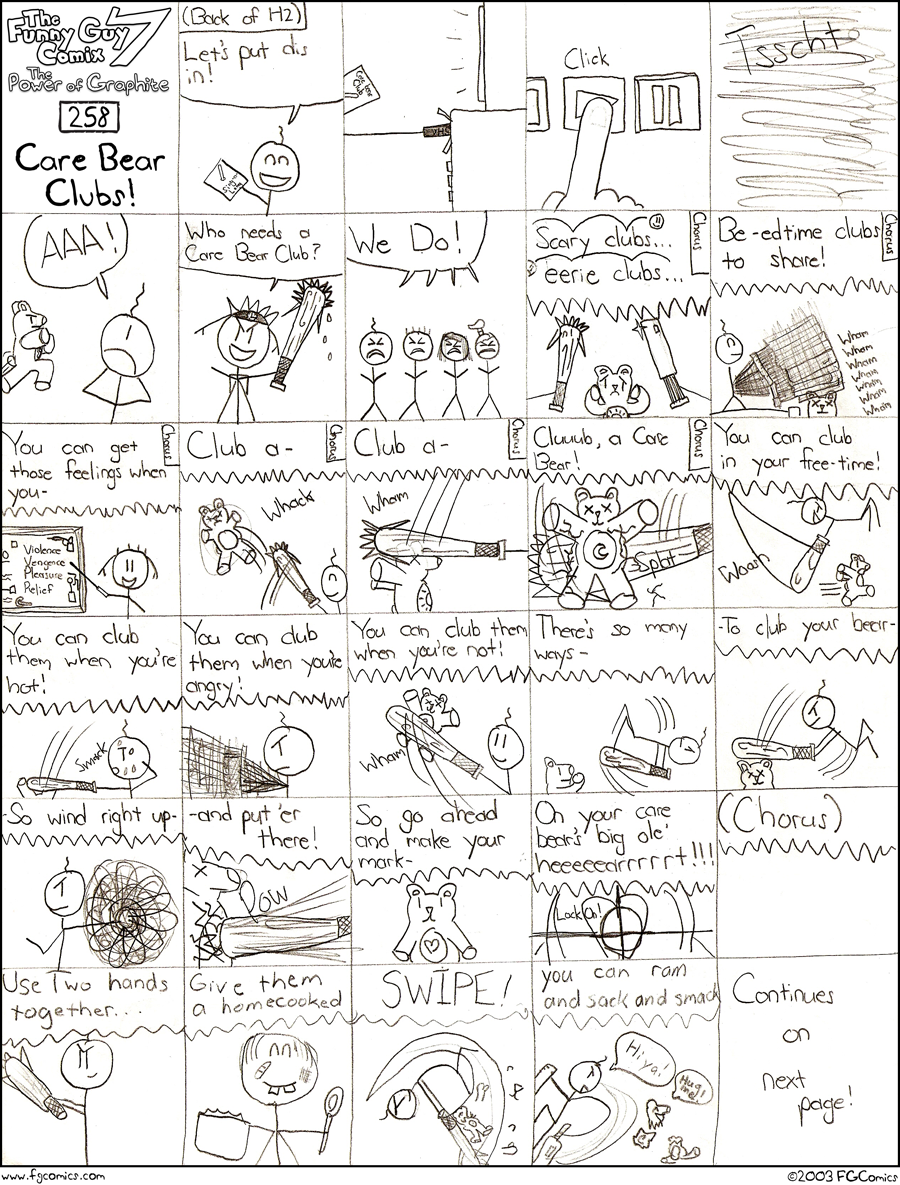 The
Funny Guy
Comix
7
The
Power of Graphite
258
Care Bear
Clubs!
(Back of H2)
Let's put dis
in!
VHS
Click
Tsscht
AAA!
Who needs a
Care Bear Club?
We Do!
Chorus
Scary clubs...
eerie clubs...
Chorus
Be-edtime clubs
to share!
Wham
Wham
Wham
Wham
Wham
Wham
Wham
Chorus
You can get
those feelings when
you-
Violence
Vengence
Pleasure
Relief
Chorus
Club a-
Whack
Chorus
Club a-
Wham
Chorus
Cluuub, a Care
Bear!
Splat
You can club
in your free-time!
Woosh
You can club
them when you're
hot!
Smack
You can club
them when you're
angry!
You can club them
when you're not!
Wham
There's so many
ways-
-To club your bear-
-So wind right up-
-and put 'er
there!
POW
So go ahead
and make your
mark-
On your care
bear's big ole'
heeeeearrrrrt!!!
Lock On!
(Chorus)
Use Two hands
together...
Give them
a homecooked
SWIPE!
you can ram
and sack and smack
Hiya!
Hug
me!
Continues
on
next
page!
www.fgcomics.com
©2003 FGComics